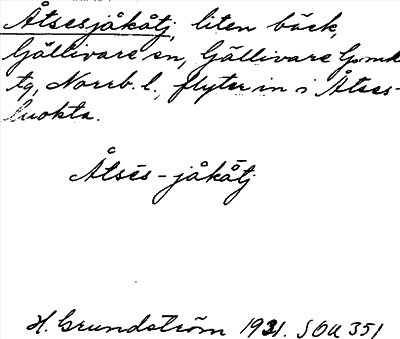 Åtsesjåkåtj, liten bäck,
Gällivare sn, Gällivare Gmk
tg, Norrb. l., flyter in i Åtses-
luokta.
Åtsēs-jåkåtj
H. Grundström 1931. SOU 351